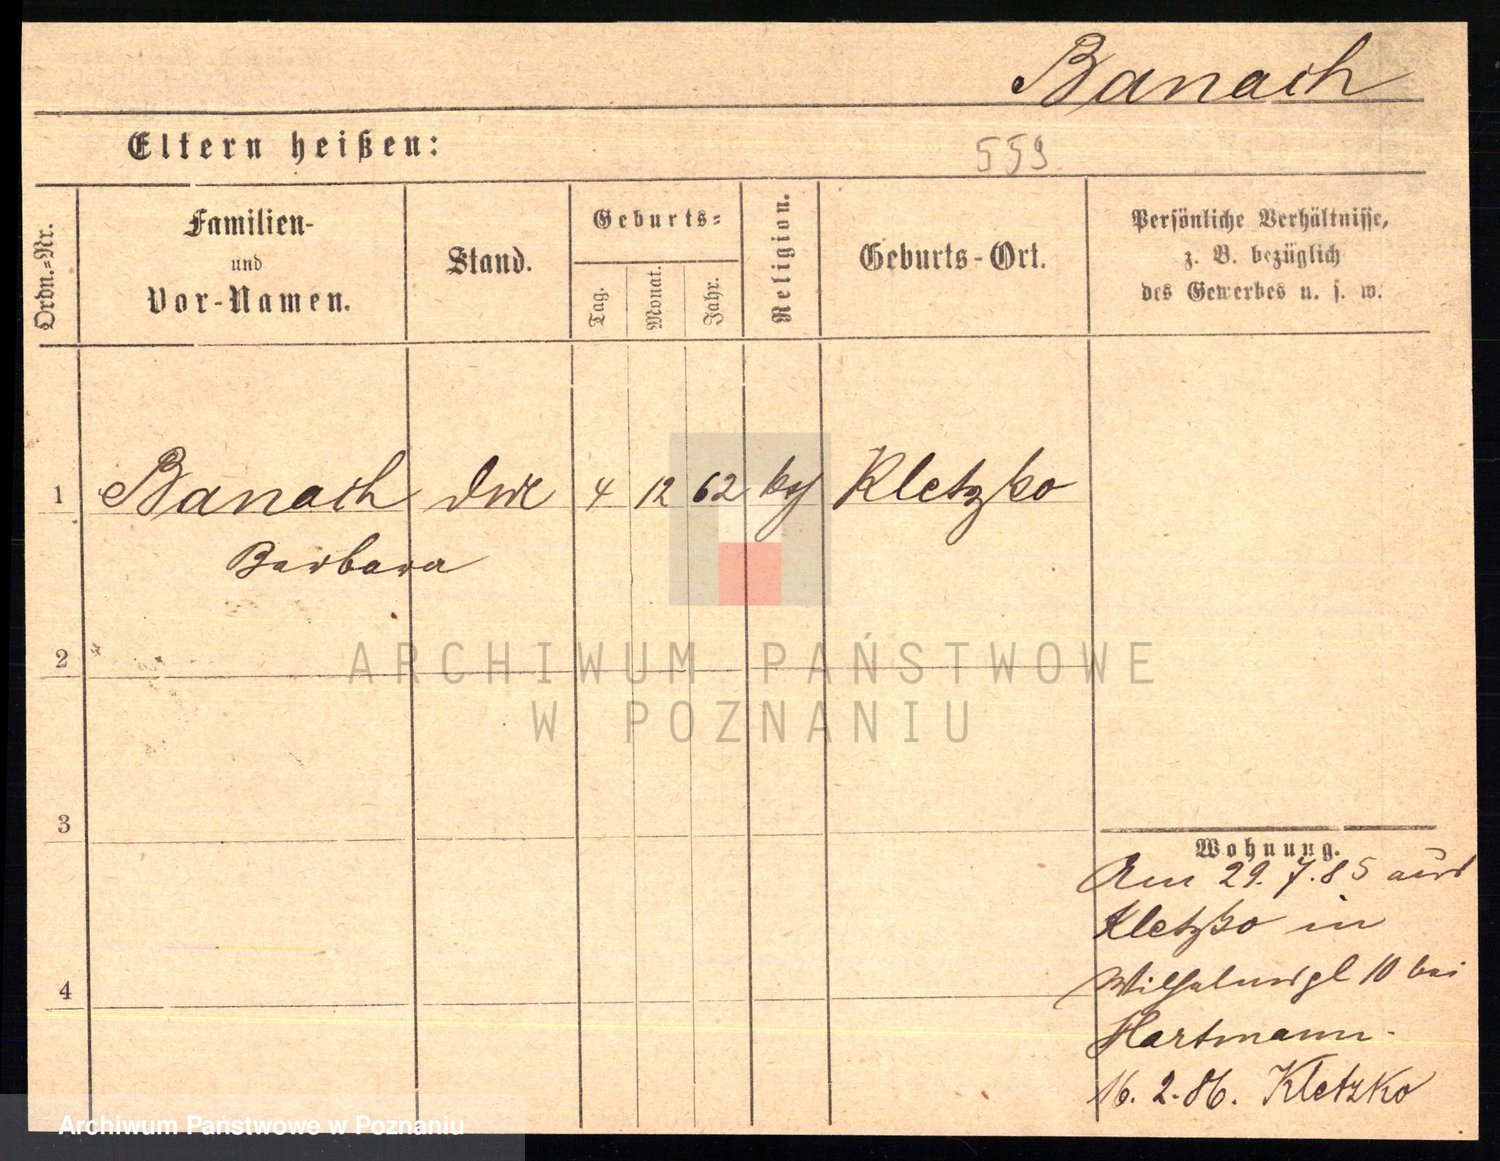 Banach
Eltern heißen:
559
Ordn.=Nr.
Familien-
und
Vor-Namen.
Stand.
Geburts=
Tag.
Monat.
Jahr.
Religion.
Geburts-Ort.
Persönliche Verhältnisse,
z. B. bezüglich
des Gewerbes u. s. w.
1 Banach 4 12 62 Kletzko
Barbara
2
ARCHIWUM PAŃSTWOWE
W POZNANIU
3
Wohnung.
Am 29.7.85 aus
Kletzko in
4
Wilhelmspl 10 bei
Hartmann.
16.2.86. Kletzko
Archiwum Państwowe w Poznaniu